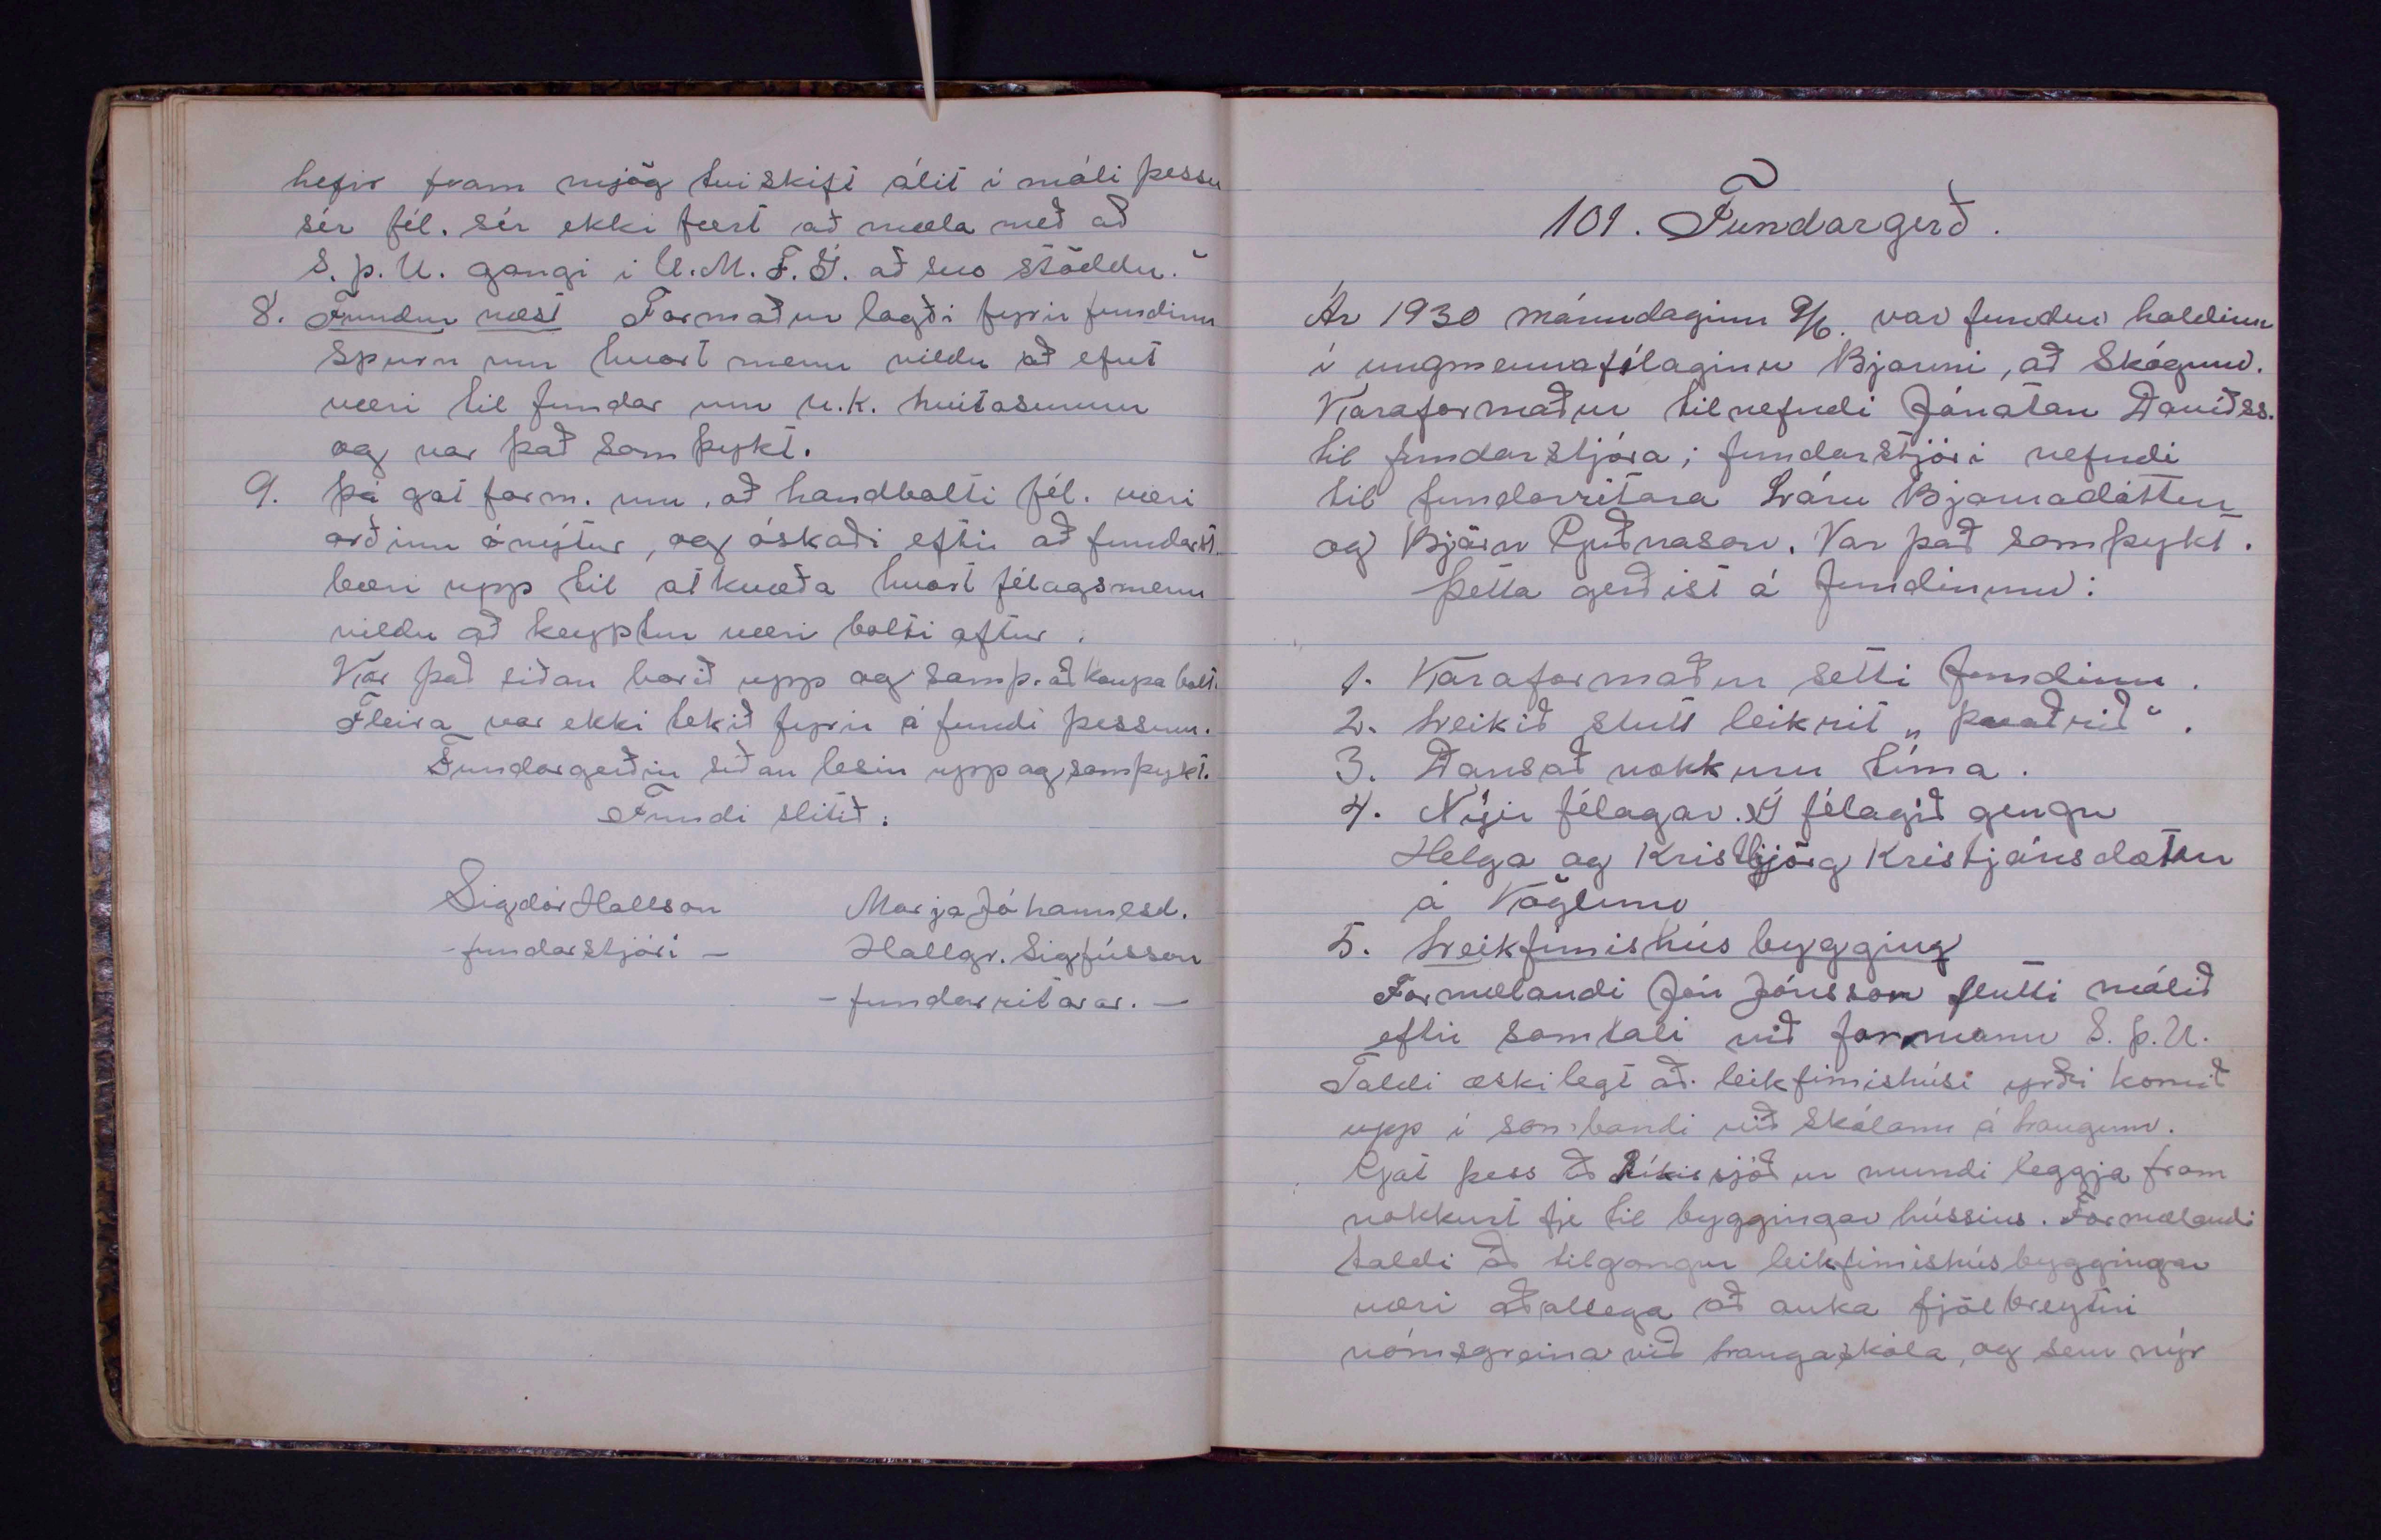 hefir fram mjög tviskift álit í máli þessu
sér fél. sér ekki fært að mæla með að
S.þ.U. gangi í U.M.F.Í. að svo stöddu.“
8. Fundur næst Formaður lagði fyrir fundinn
spurn um hvort menn vildu að efnt
væri til fundar um n.k. hvítasunnu
og var það samþykt.
9. Þá gat form. um, að handbolti fél. væri
orðinn ónýtur, og óskaði eftir að fundarst.
bæri upp til atkvæða hvort félagsmenn
vildu að keyptur væri bolti aftur.
Var það síðan borið upp og samþ. að kaupa bolt.
Fleira var ekki tekið fyrir á fundi þessum.
Fundargerðin síðan lesin upp og samþykt.
Fundi slitið.
Sigdór Hallson
- fundarstjóri -
Marja Jóhannesd.
Hallgr. Sigfússon
- fundarritarar. -
101. Fundargerð.
Ár 1930 mánudaginn 9/6. var fundur haldinn
í ungmennafélaginu Bjarmi, að Skógum.
Varaformaður tilnefndi Jónatan Davíðss.
til fundarstjóra; fundarstjóri nefndi
til fundarritara Láru Bjarnadóttur
og Björn Guðnason. Var það samþykt.
Þetta gerðist á fundinum:
1. Varaformaður setti fundinn.
2. Leikið stutt leikrit „ Þvaðrið “.
3. Dansað nokkurn tíma.
4. Nýir félagar. Í félagið gengu
Helga og Kristbjörg Kristjánsdætur
á Vöglum
5. Leikfimishús bygging
Formælandi Jón Jónsson flutti málið
eftir samtali við formann S.þ.U.
Taldi æskilegt að leikfimishúsi yrði komið
upp í sambandi við skólann á Laugum.
Gat þess að Ríkissjóður mundi leggja fram
nokkurt fje til byggingar hússins. Formælandi
taldi að tilgangur leikfimishúsbyggingar
væri aðallega að auka fjölbreytni
námsgreina við Laugaskóla, og sem nýr